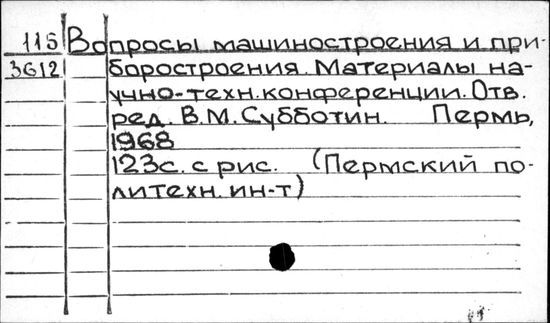 115 Вопросы машиностроения и при-
3612 боростроения. Материалы на-
учно-техн. конференции. Отв.
ред. В.М. Субботин. Пермь,
1968
123с. с рис. (Пермский по-
литехн. ин-т)